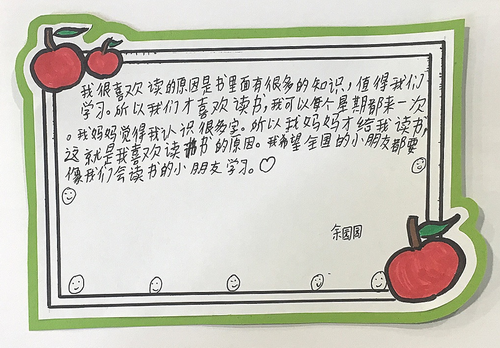 我很喜欢读的原因是书里面有很多的知识，值得我们
学习。所以我们才喜欢读书，我可以每个星期都来一次
。我妈妈觉得我认识很多字。所以我妈妈才给我读书，
这就是我喜欢读书的原因。我希望全国的小朋友都要
像我们会读书的小朋友学习。♡
余圆圆